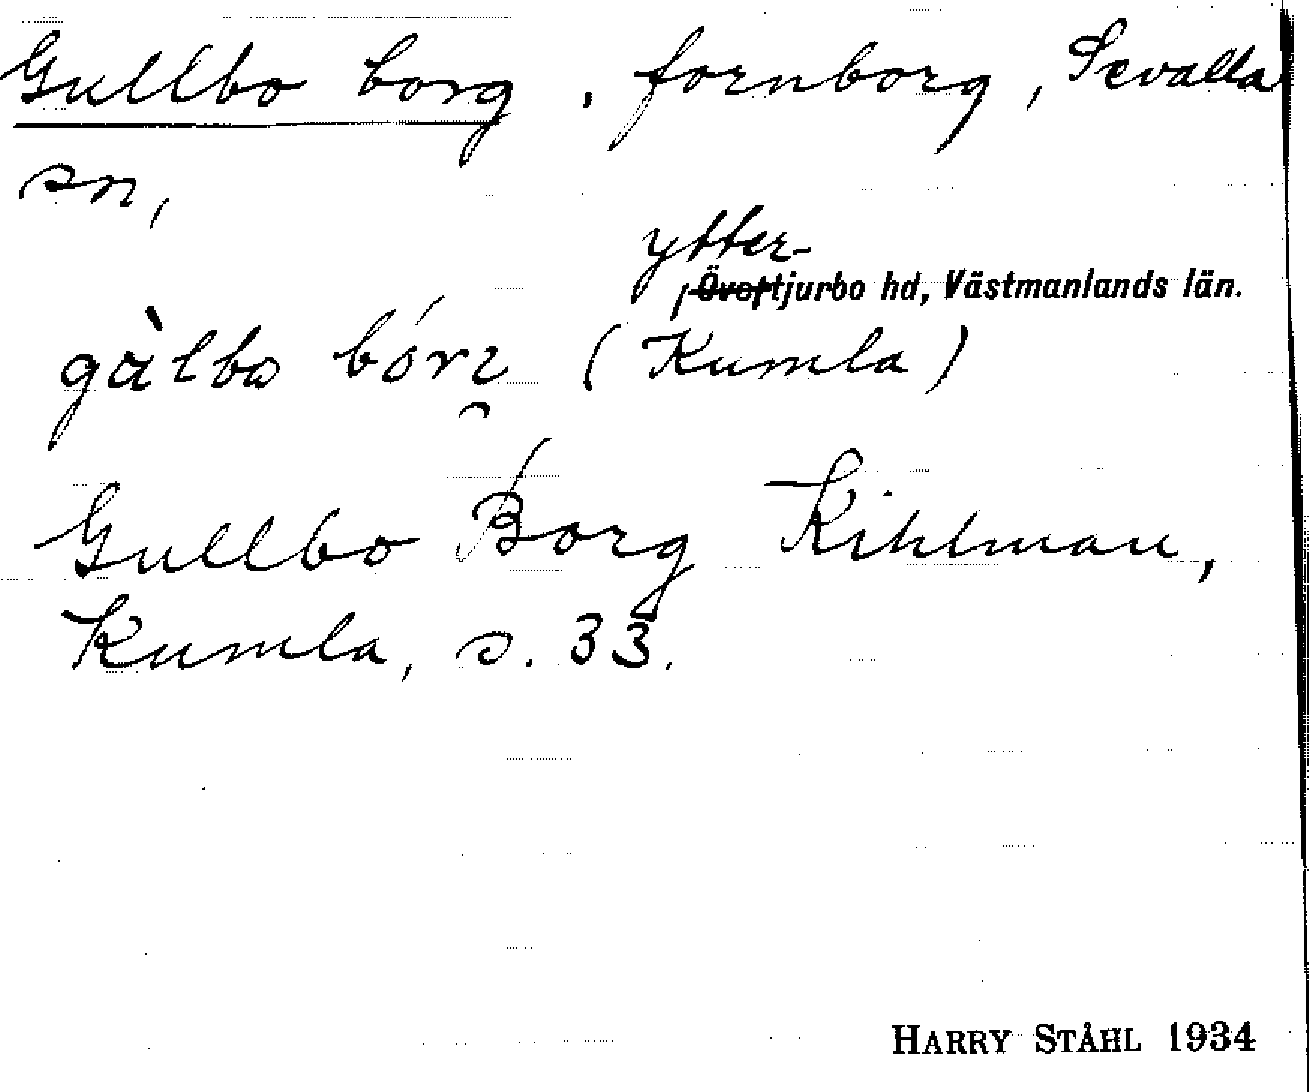 Gullbo borg, fornborg, Sevalla
sn,
ytter-
Övertjurbo hd, Västmanlands län.
(Kumla)
Gullbo Borg Kihlman,
Kumla, s. 33.
HARRY STÅHL 1934